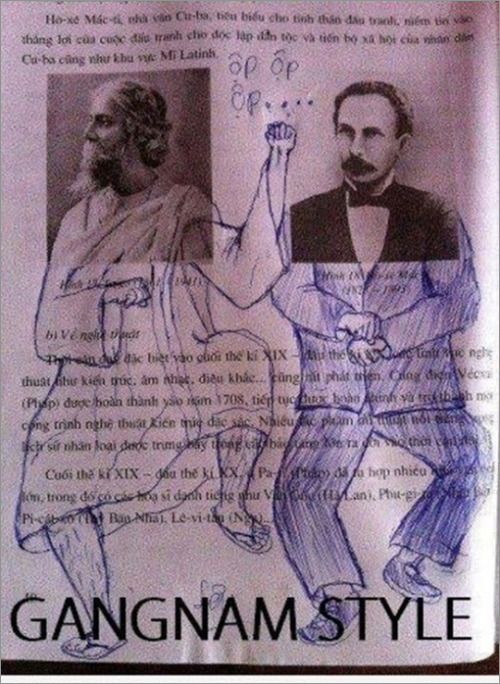 Hô-xê Mác-ti, nhà văn Cu-ba, tiêu biểu cho tinh thần đấu tranh, niềm tin vào
thắng lợi của cuộc đấu tranh cho độc lập dân tộc và tiến bộ xã hội của nhân dân
Cu-ba cũng như khu vực Mĩ Latinh.
ộp ộp
ộp....
Hình
b) Về nghệ thuật
đặc biệt vào cuối thế kỉ XIX – đầu thế kỉ nghệ
thuật như kiến trúc, âm nhạc, điêu khắc... cũng rất phát triển. Cung điện Vécxai
(Pháp) được hoàn thành vào năm 1708, tiếp tục được hoàn chỉnh và trở thành một
công trình nghệ thuật kiến trúc đặc sắc. Nhiều tác phẩm mĩ thuật nổi tiếng
lịch sử nhân loại được trưng bày trong bảo tàng lớn ra đời vào thời
Cuối thế kỉ XIX – đầu thế kỉ XX, ở Pa-ri (Pháp) đã tụ họp nhiều
lớn, trong đó có các họa sĩ danh tiếng như Van (Hà Lan), Phu-gi-ta
Pi-cát-xô (Tây Ban Nha), Lê-vi-tan (Nga)...
GANGNAM STYLE